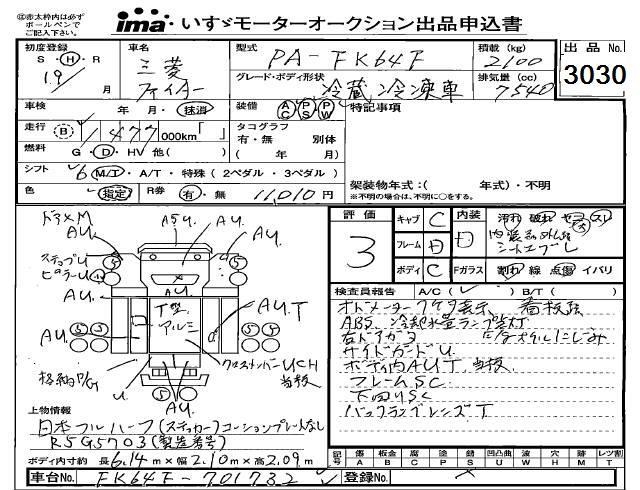 ㊟赤太枠内は必ず
ボールペンで
ご記入下さい。
ima いすゞモーターオークション出品申込書
初度登録
S・H・R
19 月
車名
三菱
ファイター
型式
PA-FK64F
グレード・ボディ形状
冷蔵冷凍車
積載 (kg)
2100
排気量 (cc)
7540
出品 No.
3030
車検 年 月・抹消
走行 B 1477 000km「 」
燃料 G・D・HV 他( )
シフト 6 M/T・A/T・特殊 (2ペダル・3ペダル)
色 指定 R券 有・無 11,010円
装備 AC PS PW
タコグラフ
有・無 別体
( 年 月)
特記事項
架装物年式:( 年式)・不明
※不明の場合は、不明に○をする。
評価
3
キャブ C
フレーム D
ボディ C
内装
D
Fガラス
汚れ 破れ
割れ 線 点傷 イバリ
検査員報告 A/C( ) B/T( )
オドメーター7ケタ表示 看板跡
ABS、冷却水量ランプ点灯
サイドガードU
ボディ内AUT
フレームSC
下回りSC
バックランプレンズT
ドアxM
AU.
ステップU
ピラーU
A5U
AU.
AU.
AU.
T型
アルミ
AU.T
クロスメンバーUCH
AU.
上物情報
日本フルハーフ(ステッカー)コーションプレートなし
R5G5703(製造番号)
ボディ内寸約 長6.14m×幅2.10m×高2.09m
記号 傷A 板金B 腐C 塗P 錆S 凹凸曲U 波W 穴H 跡M レツ割T
車台No. FK64F-701732
登録No.